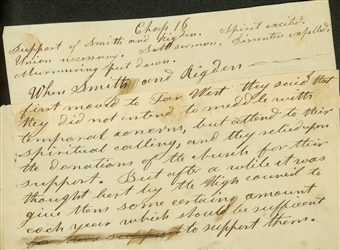 Chap 16
Support of Smith and Rigdon. Spirit excited.
Union necessary. Salt sermon. Dissenters expelled.
Murmuring put down.
When Smith and Rigdon
first moved to Far West they said that
they did not intend to meddle with
temporal concerns, but attend to their
spiritual calling, and they relied upon
the donations of the church for their
support. But after a while it was
thought best by the High council to
give them some certain amount
each year which should be sufficient
to support them.